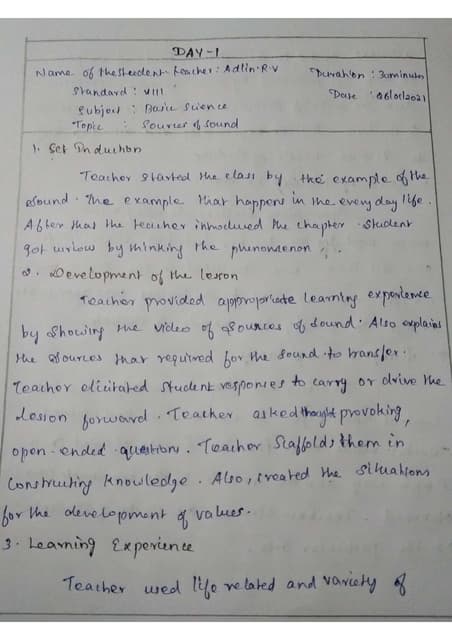 DAY-1
Name of the student teacher : Adlin.R.V Duration : 30minutes
Standard : VIII Date : 06/01/2021
Subject : Basic Science
Topic : Sources of Sound
1. Set Induction
Teacher started the class by the example of the
sound. The example that happens in the every day life.
After that the teacher introduced the chapter. Student
got by thinking the phenomenon
2. Development of the lesson
Teacher provided appropriate learning experience
by showing the video of Sources of Sound. Also explains
the sources that required for the sound to transfer.
Teacher elicitated student responses to carry or drive the
lesson forward. Teacher asked thought provoking,
open-ended questions. Teacher Scaffolds them in
Constructing knowledge. Also, created the situations
for the development of values.
3. Learning Experience
Teacher used life related and variety of